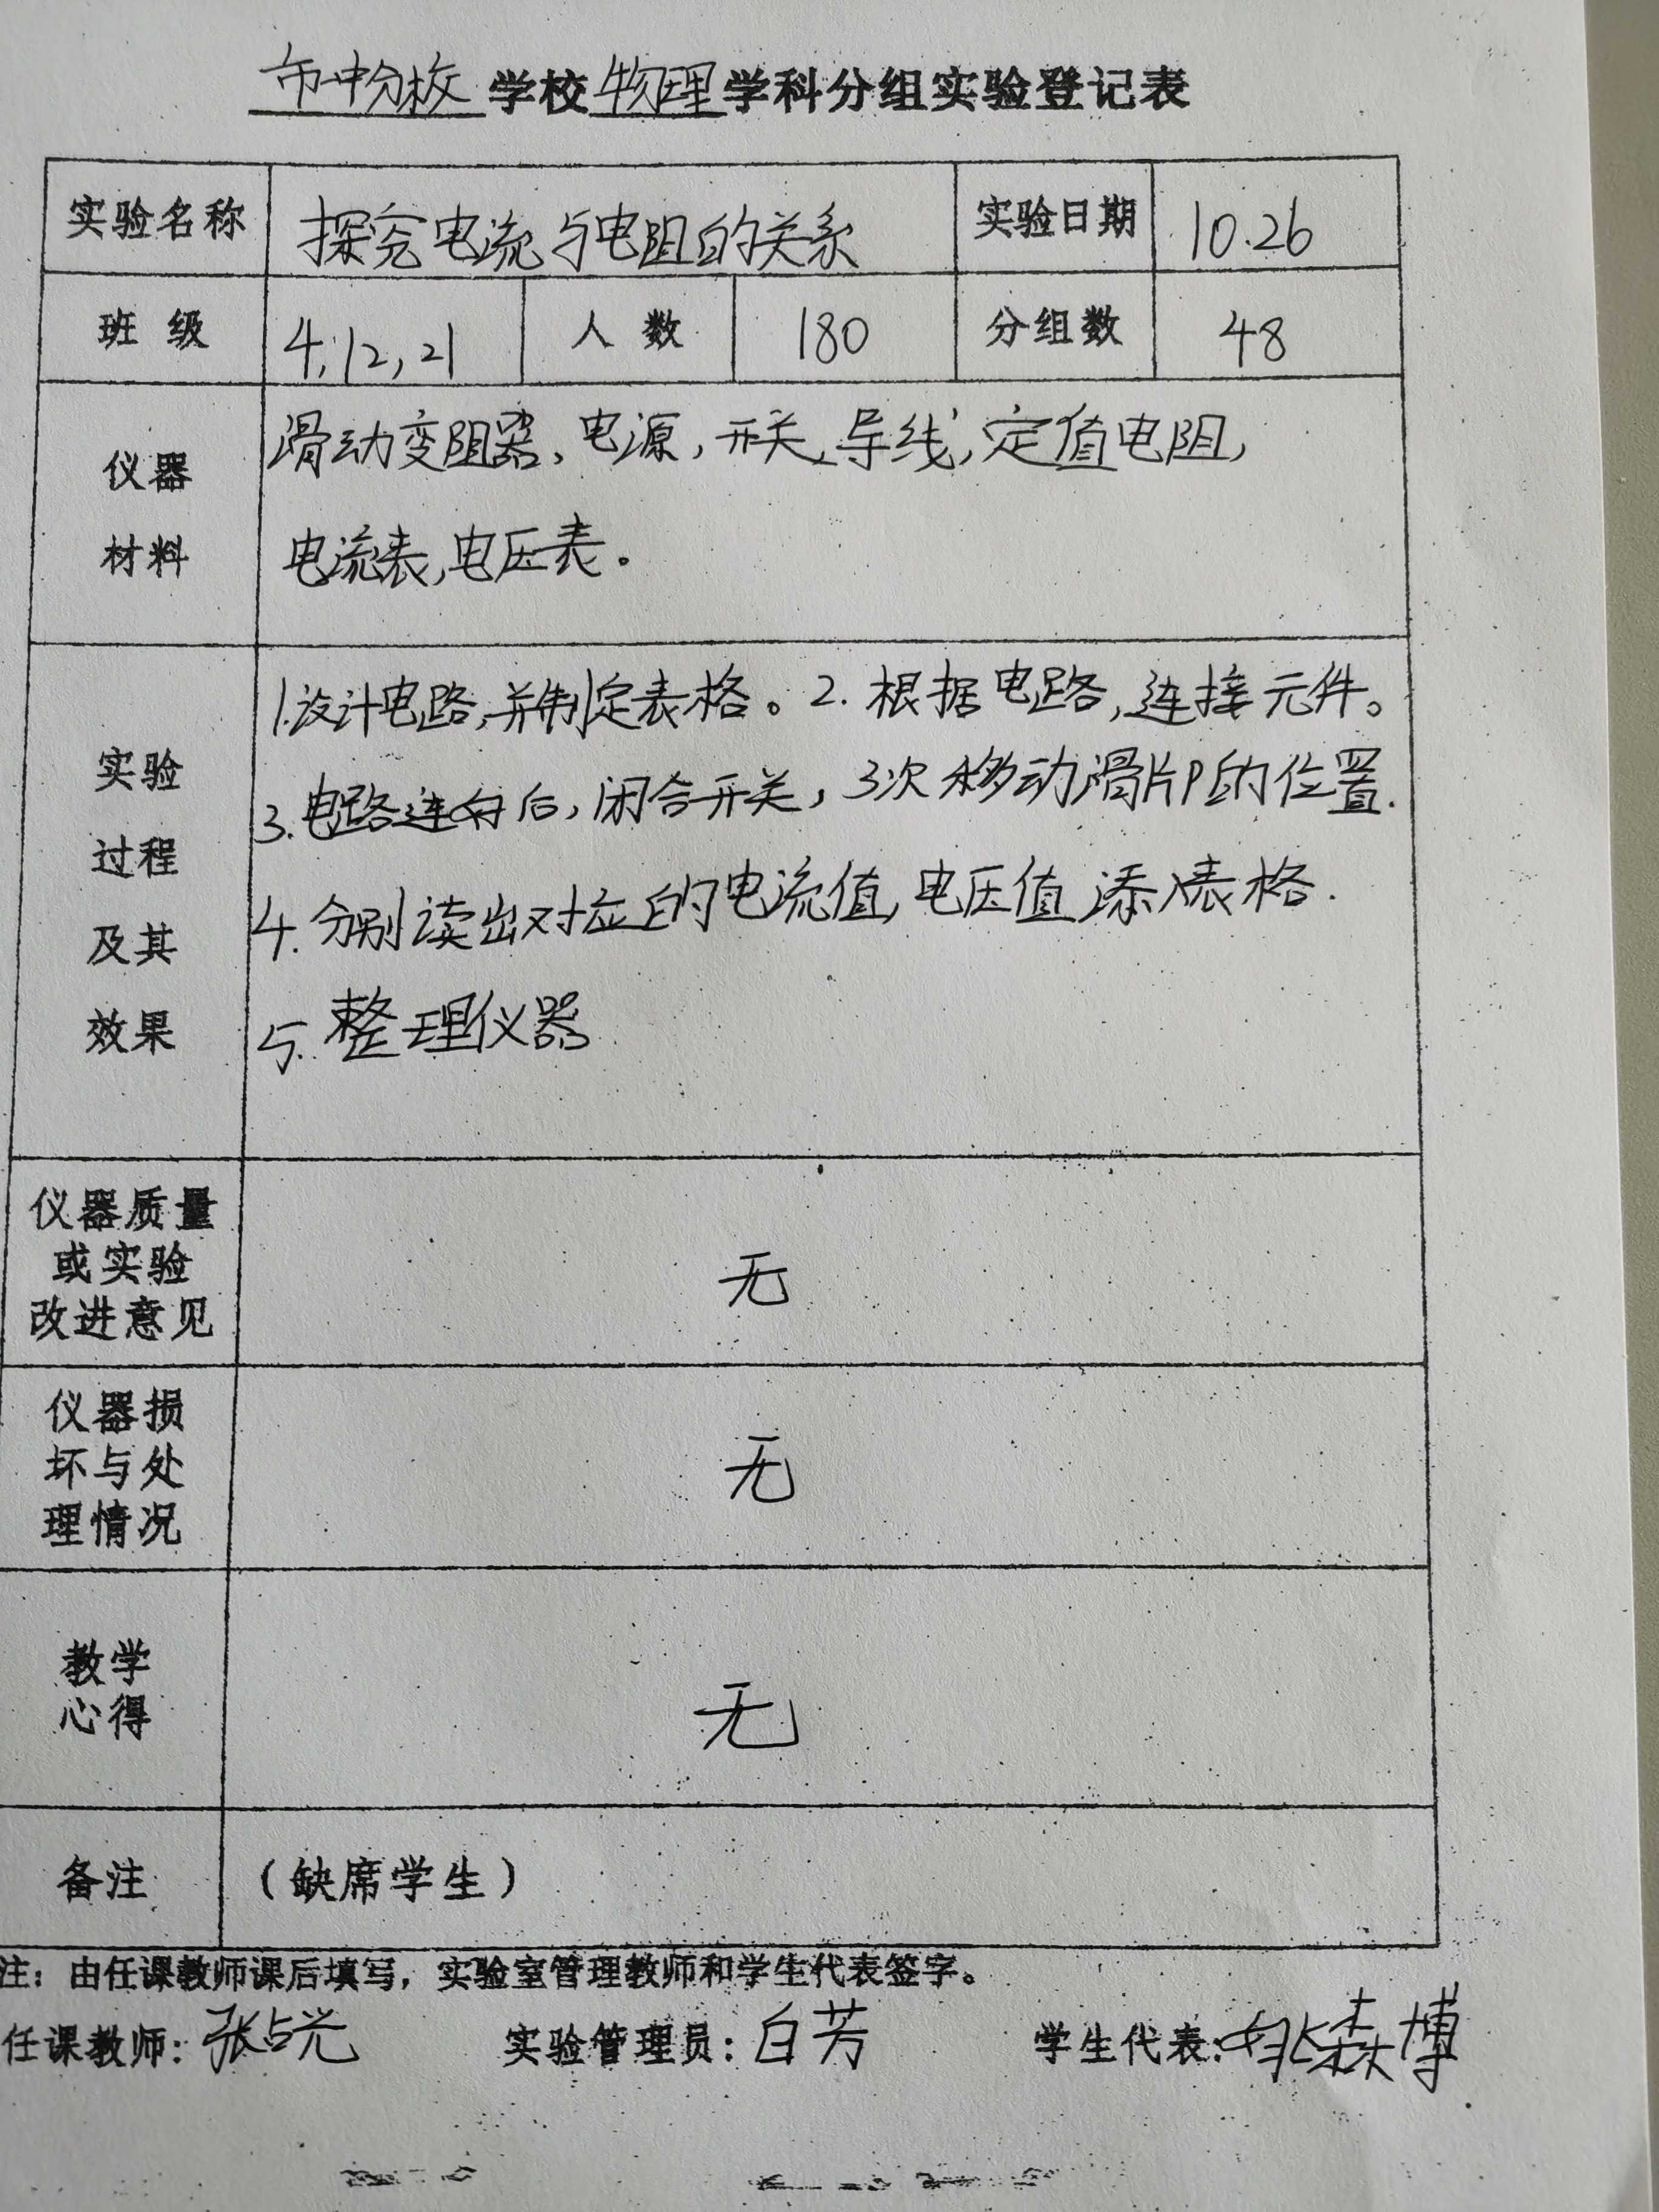 市中分校学校物理学科分组实验登记表
实验名称 探究电流与电阻的关系 实验日期 10.26
班级 4,12,21 人数 180 分组数 48
仪器
材料
滑动变阻器、电源,开关,导线,定值电阻,
电流表,电压表.
实验
过程
及其
效果
1.设计电路,并制定表格。2.根据电路,连接元件。
3.电路连好后,闭合开关,3次移动滑片P的位置.
4.分别读出对应的电流值,电压值添入表格.
5.整理仪器
仪器质量
或实验
改进意见
无
仪器损
坏与处
理情况
无
教学
心得
无
备注 (缺席学生)
注:由任课教师课后填写,实验室管理教师和学生代表签字。
任课教师:张占光 实验管理员:白芳 学生代表:姚森博